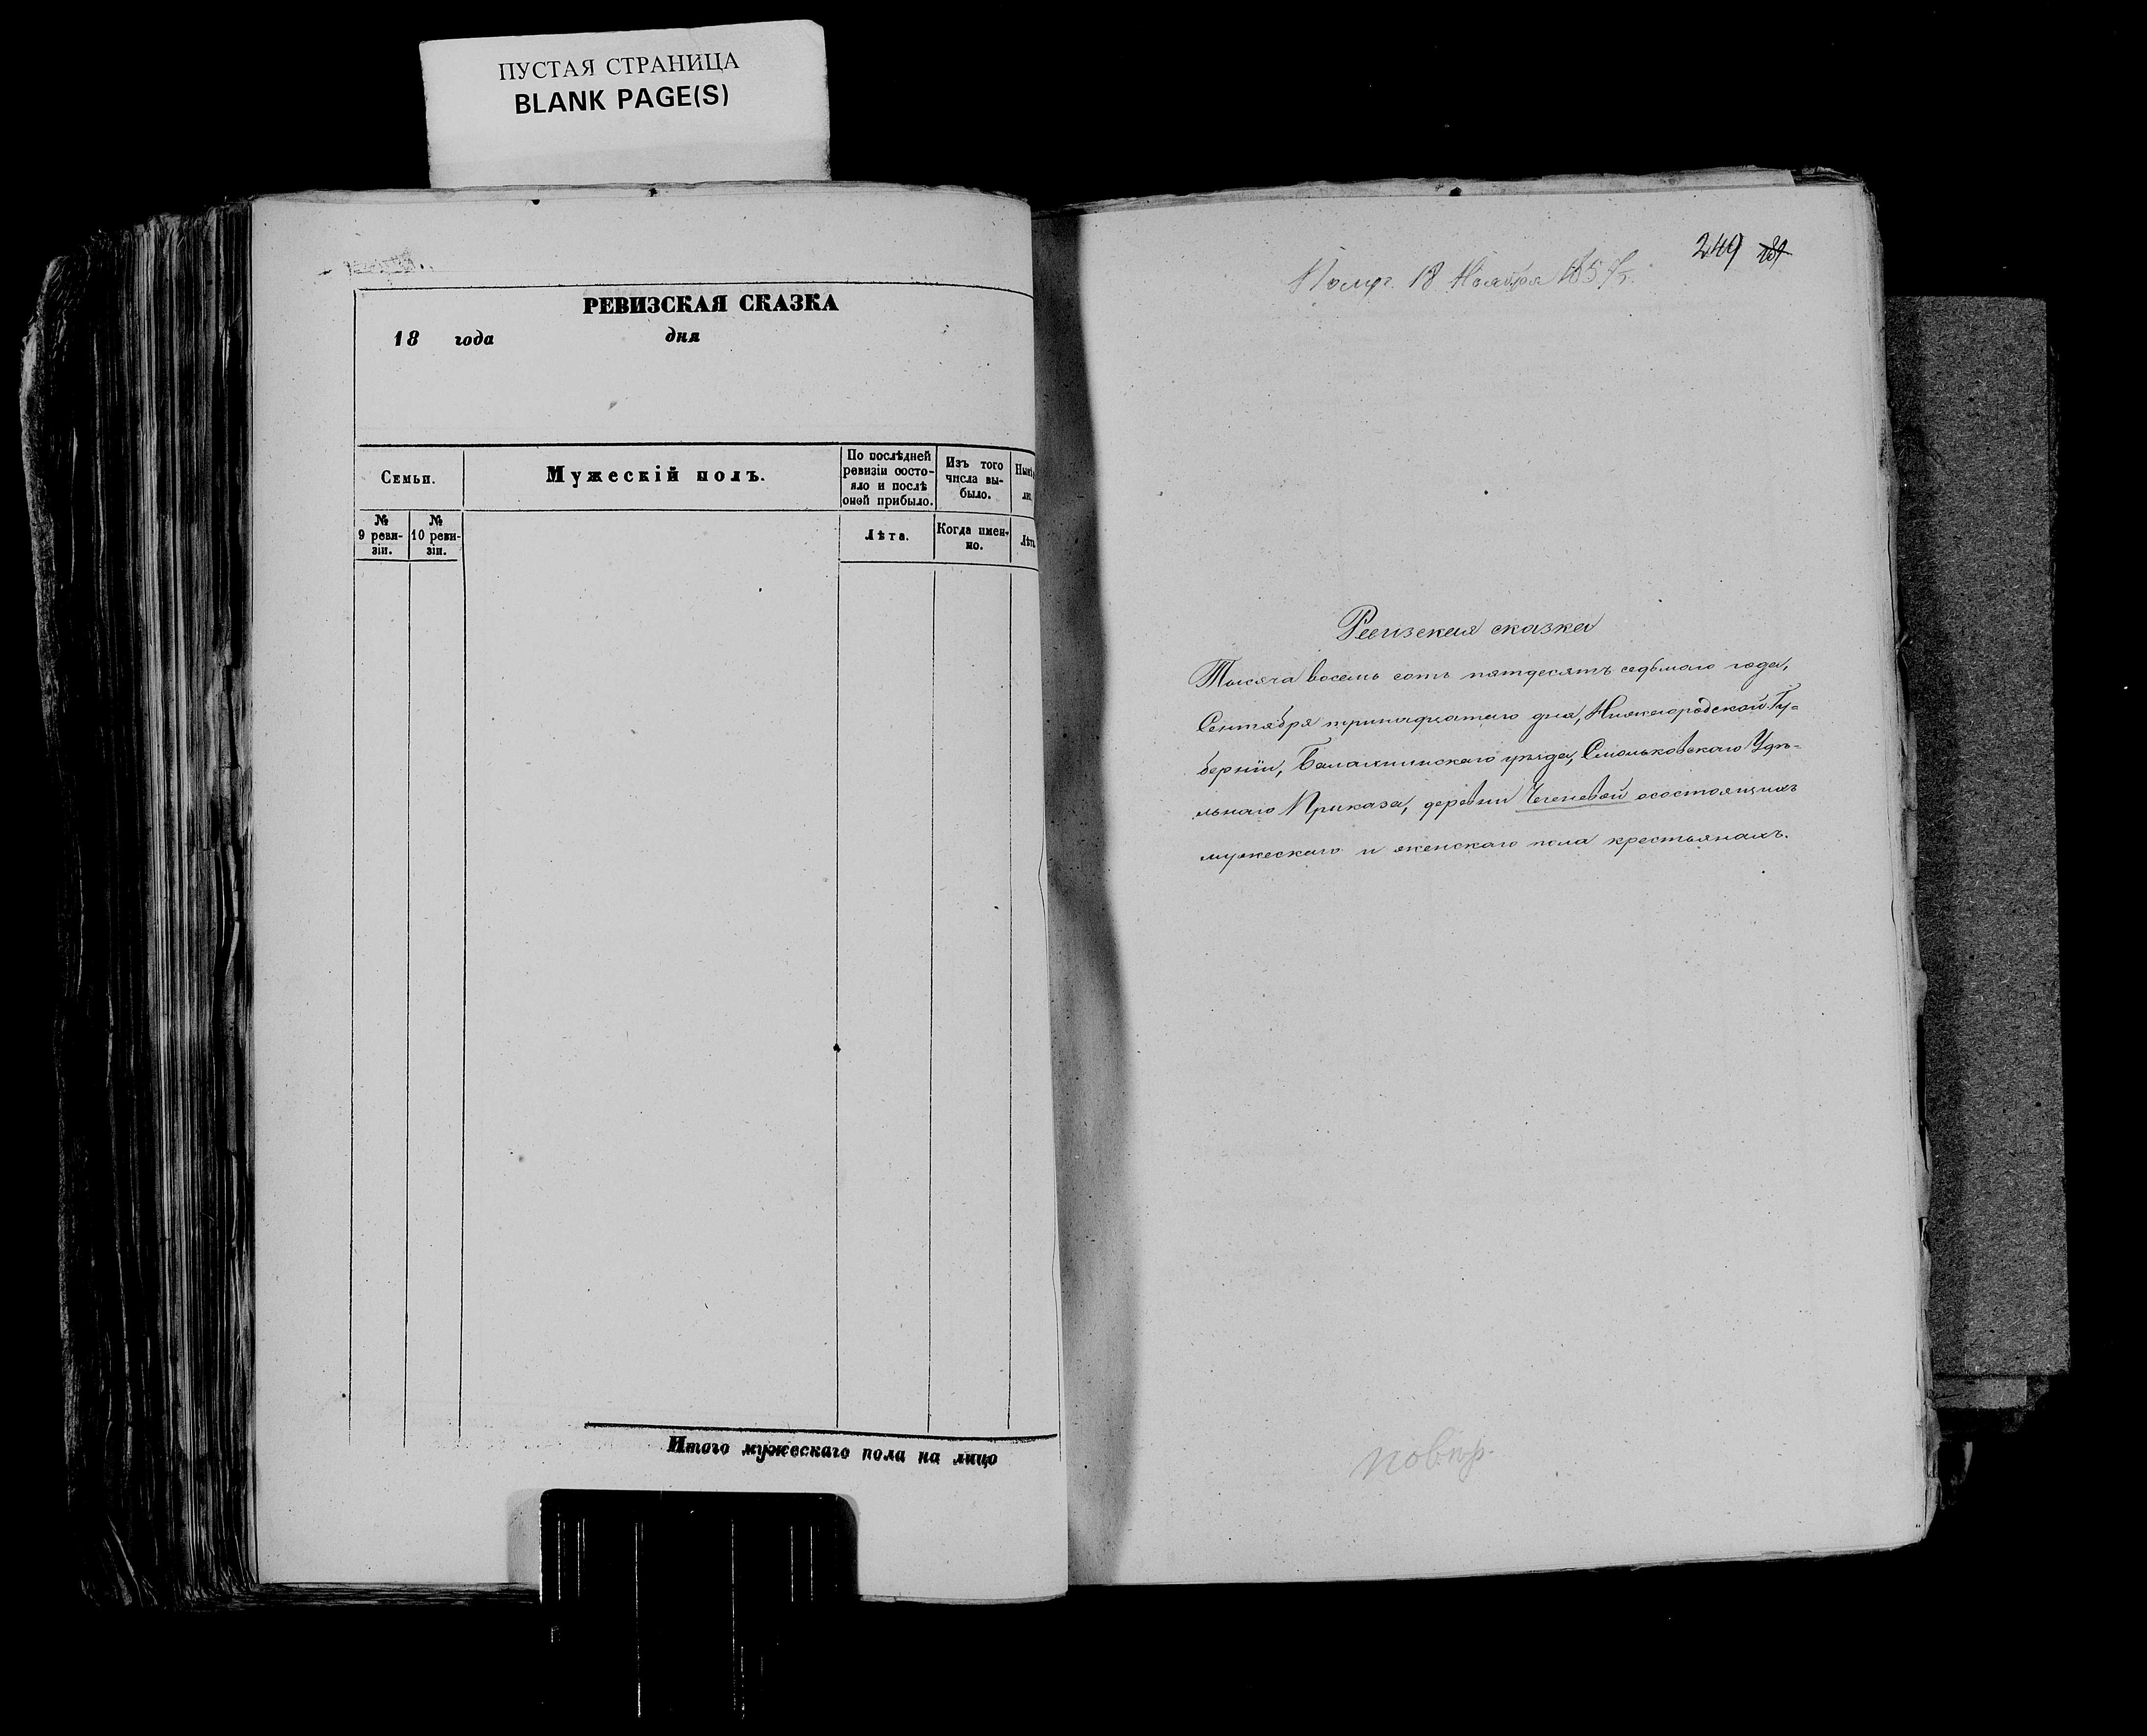 ПУСТАЯ СТРАНИЦА
BLANK PAGE(S)
РЕВИЗСКАЯ СКАЗКА
18 года дня
Семьи.
Мужескій полъ.
По послѣдней
ревизіи состо-
яло и послѣ
оной прибыло.
Изъ того
числа вы-
было.
№
9 реви-
зіи.
№
10 реви-
зіи.
Лѣта.
Когда имен-
но.
Лѣта
Итого мужескаго пола на лицо
249
18 Ноября 1857 г.
Ревизская сказка
Тысяча восемь сотъ пятдесятъ седьмаго года,
Сентября тринадцатаго дня, Нижегородской Гу-
берніи, Балахнинскаго уѣзда, Смольковскаго Удѣ-
льнаго Приказа, деревни осостоящихъ
мужескаго и женскаго пола крестьянахъ.